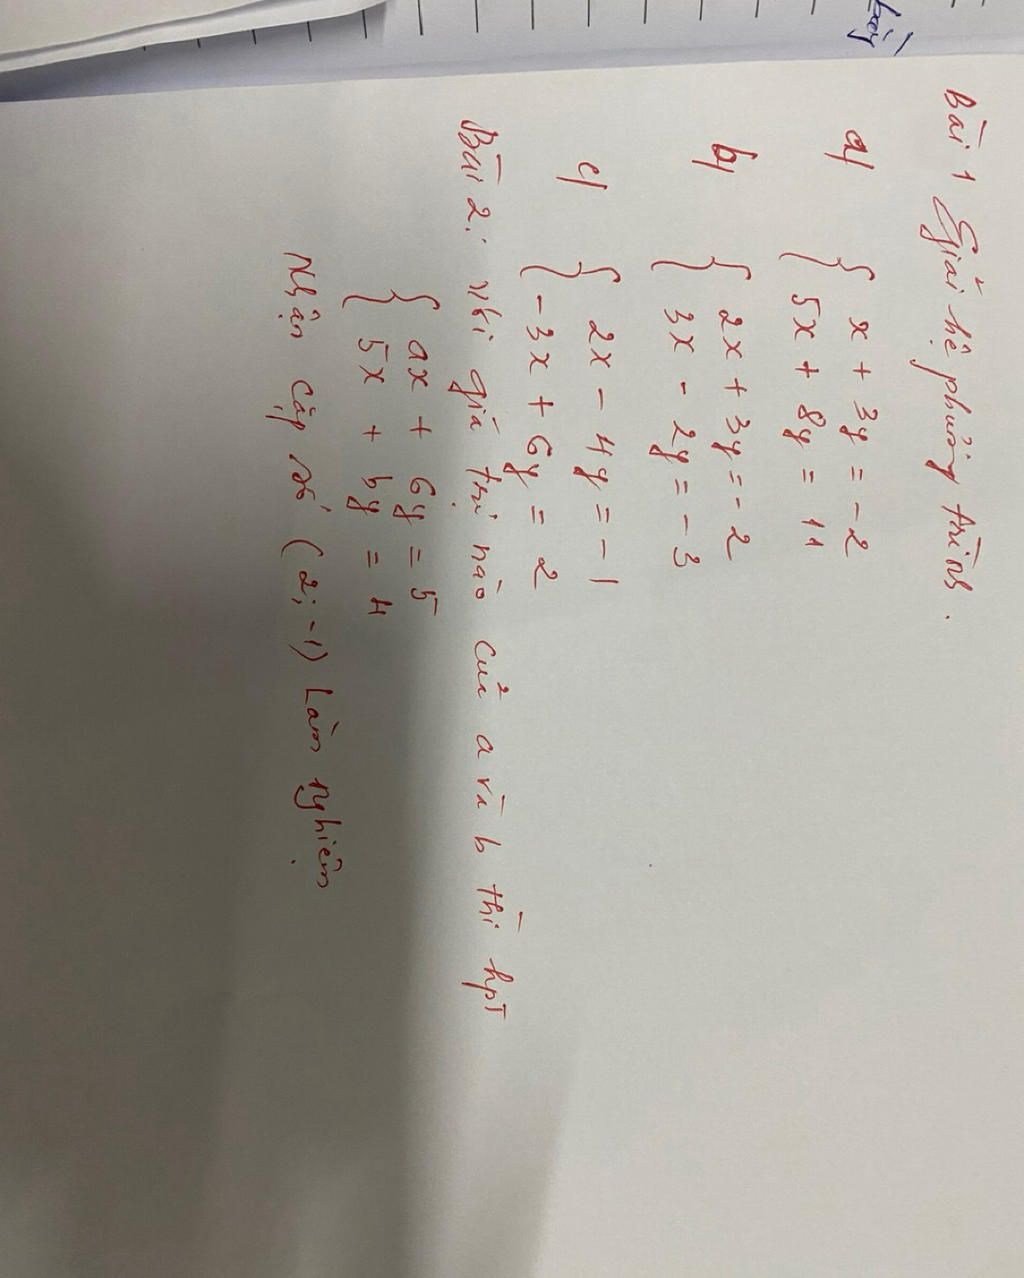 bày
Bài 1 Giải hệ phương trình.
a/ { x + 3y = -2
5x + 8y = 11
b/ { 2x + 3y = -2
3x - 2y = -3
c/ { 2x - 4y = -1
-3x + 6y = 2
Bài 2: Với giá trị nào của a và b thì hpT
{ ax + 6y = 5
5x + by = 4
Nhận cặp số (2; -1) Làm nghiệm